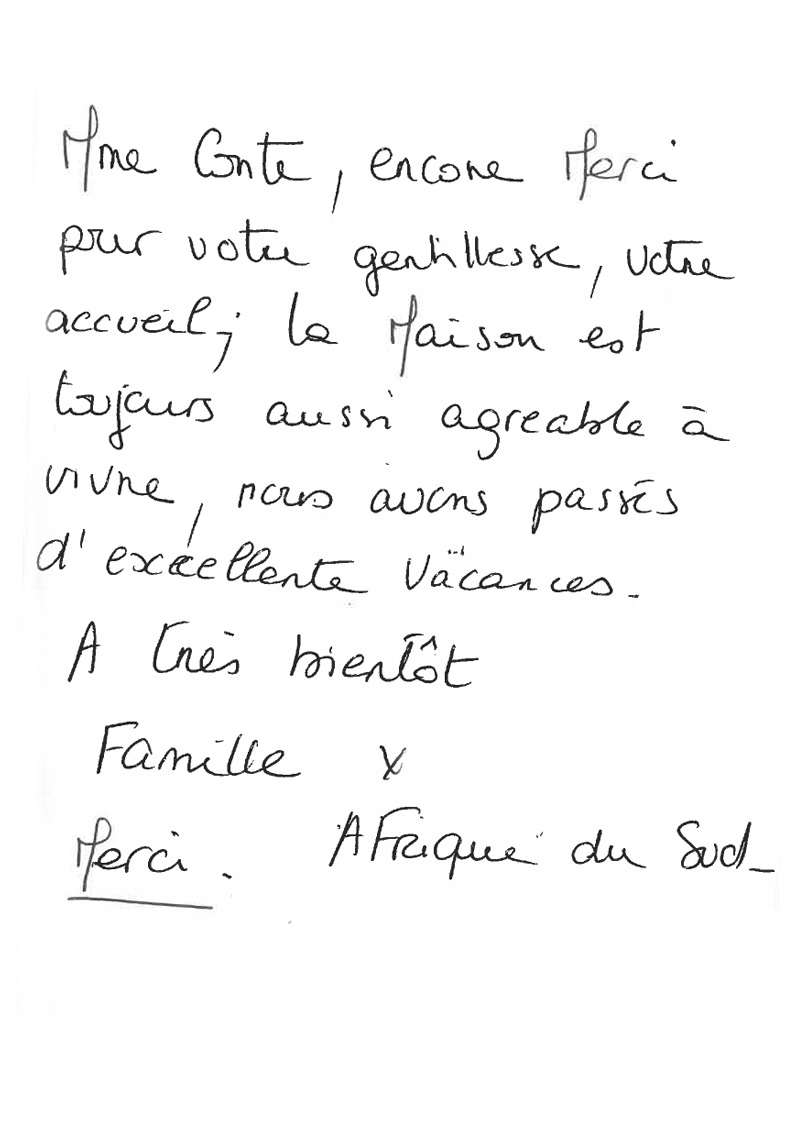 Mme Conte, encore Merci
pour votre gentillesse, votre
accueil ; la Maison est
toujours aussi agreable à
vivre, nous avons passés
d'excellente vacances.
A très bientôt
Famille X
Merci. Afrique du Sud_